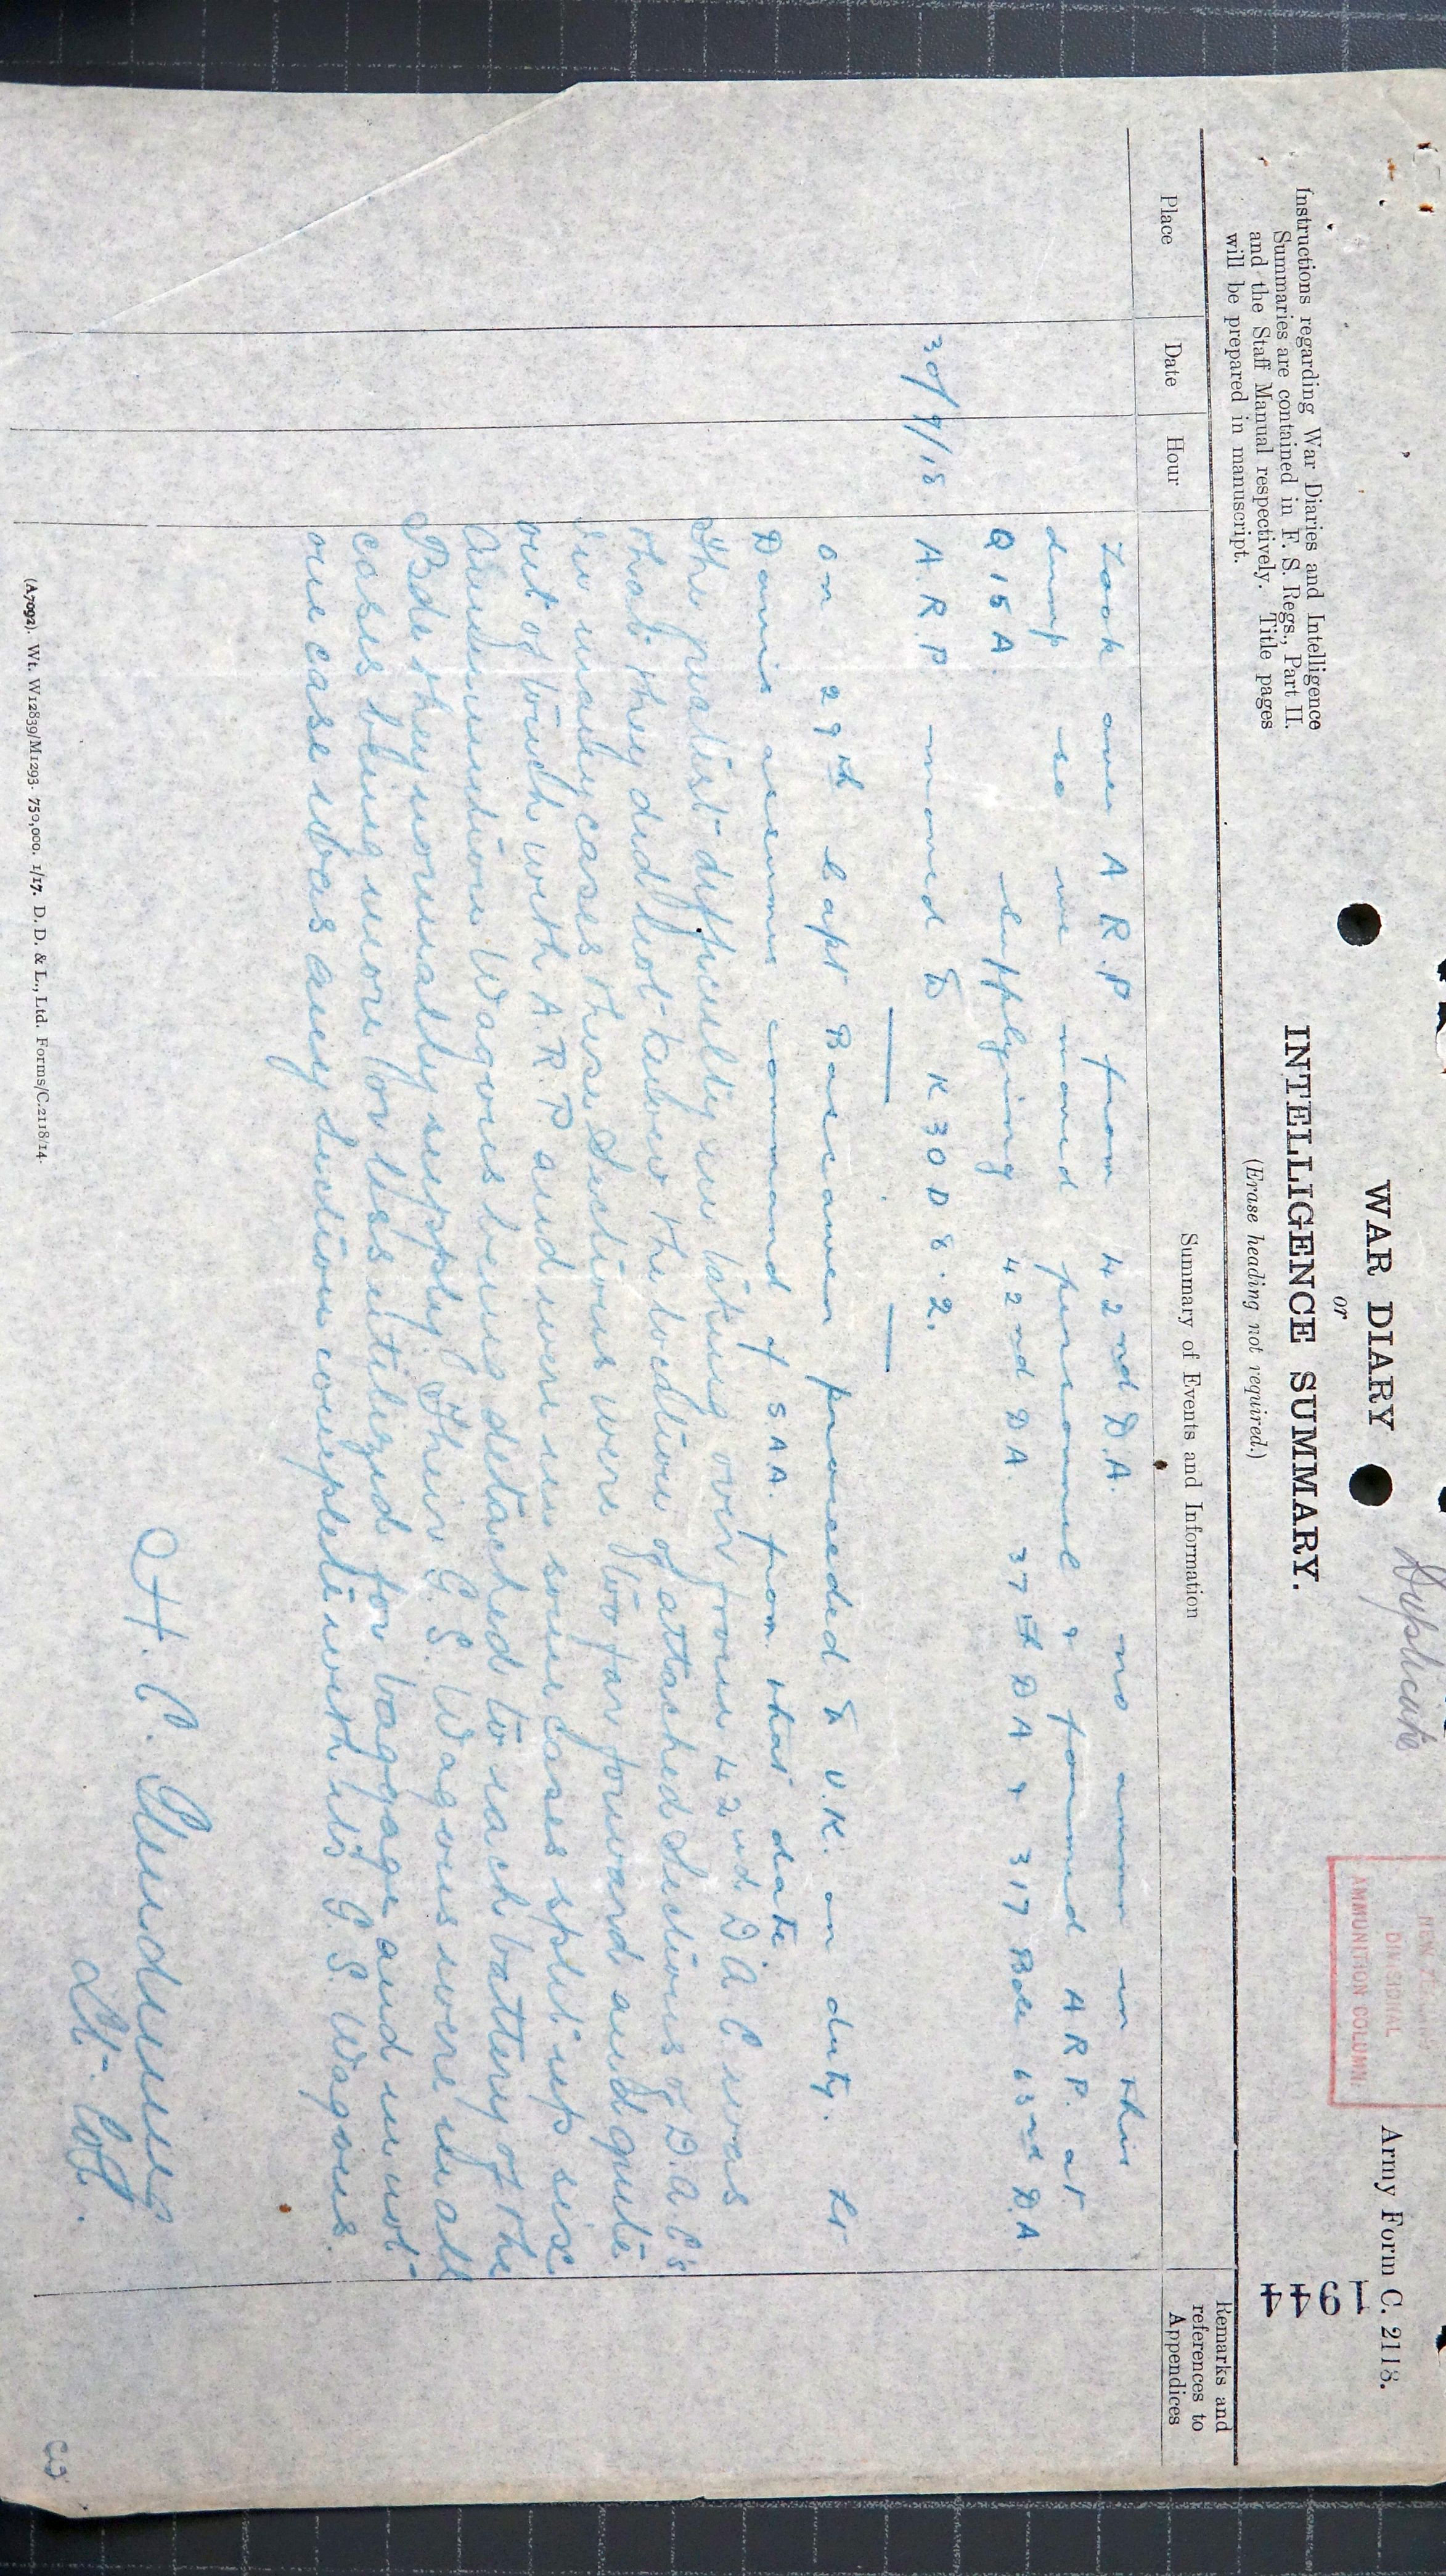 Duplicate
Army Form C. 2118.
WAR DIARY
or
INTELLIGENCE SUMMARY.
(Erase heading not required.)
1944
DIVISIONAL
AMMUNITION COLUMN
Instructions regarding War Diaries and Intelligence
Summaries are contained in F. S. Regs., Part II.
and the Staff Manual respectively. Title pages
will be prepared in manuscript.
Place
Date
Hour
Summary of Events and Information
Remarks and
references to
Appendices
Took over A R. P from 42nd D.A. no ammn in this
dump so we moved personnel & formed A R P. at
Q 15 A. supplying 42nd DA. 37th DA & 317 Bde 63rd D.A
30/9/18. A. R. P moved to K 30 D 8. 2.
on 29th Capt proceeded to U.K. on duty. Lt
Dennis assumes command of S A A. from that date.
The greatest difficulty in taking over from 42nd D A C was
that they did not know the location of attached Sections of D. A C's
In many cases these Sections were too far forward and quite
out of touch with A. R P and were in some cases split up six
Ammunition Wagons being detached to each battery of the
Bde they normally supply. Their G. S. Wagons were in all
cases being more or less utilized for baggage and in not
one case was any Section complete with its G S. Wagons.
H. C.
Lt- Col.
(A7092). Wt. W12839/M1293. 750,000. 1/17. D. D. & L., Ltd. Forms/C.2118/14.